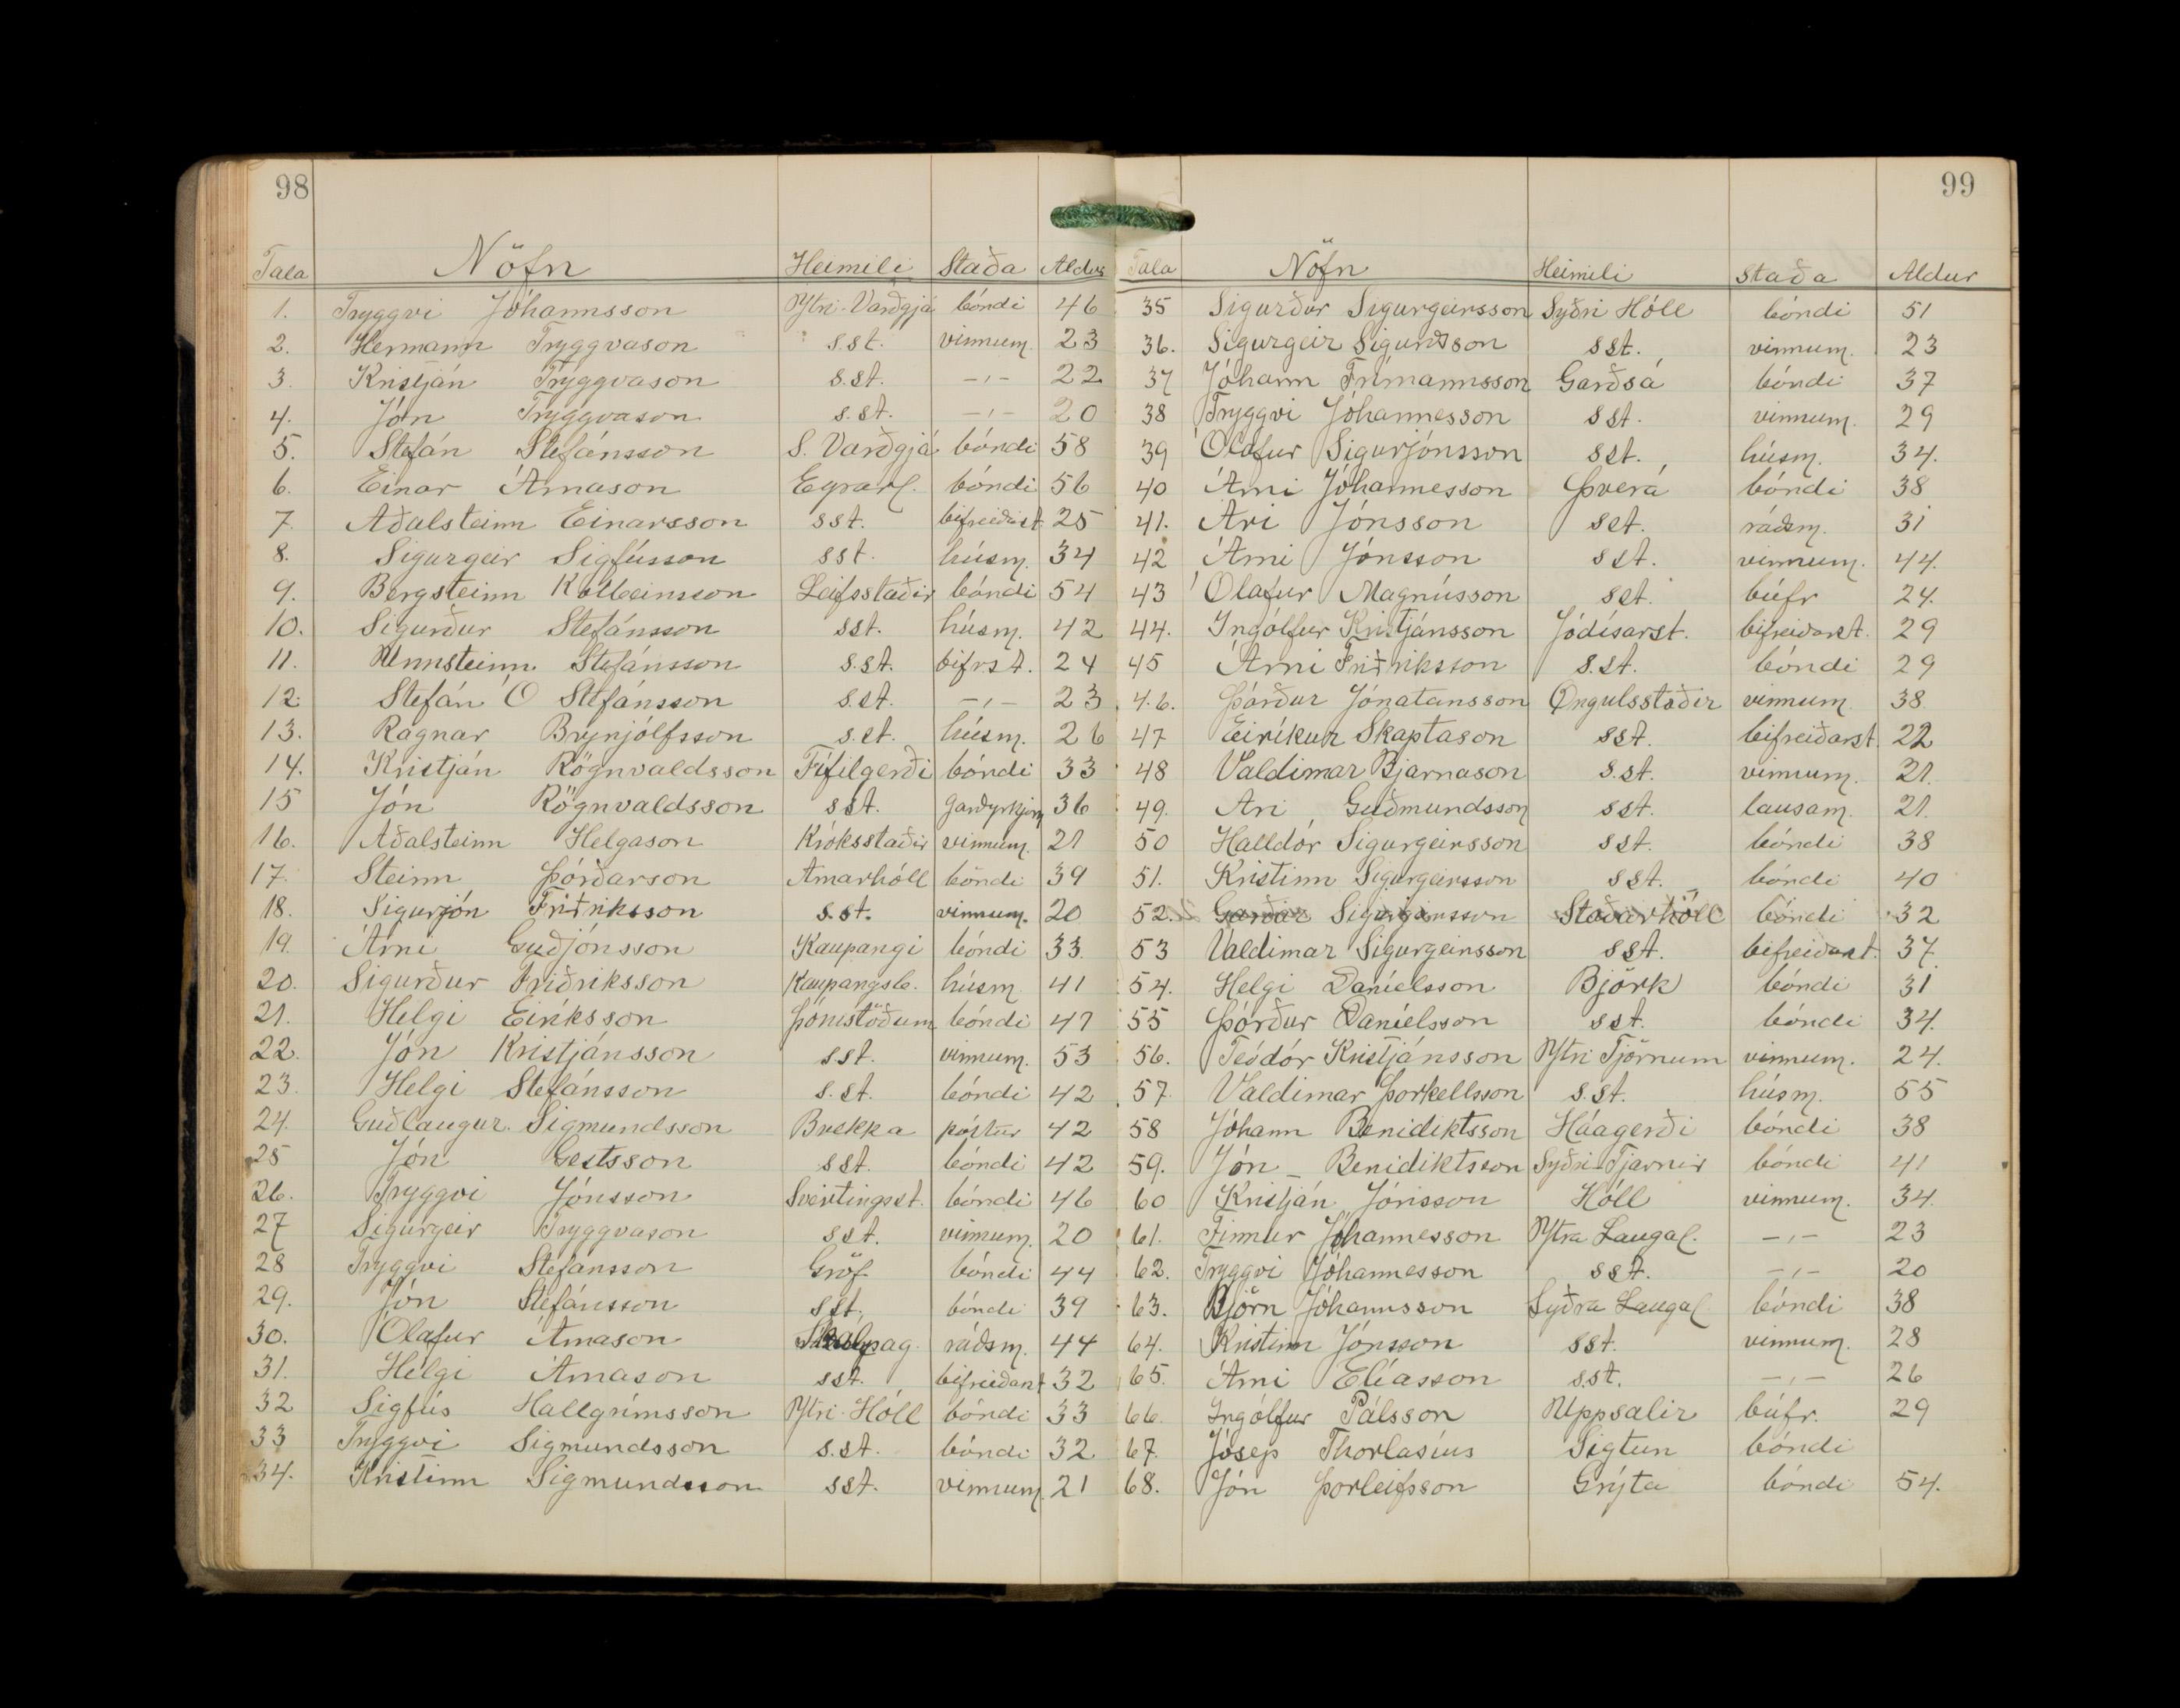 98
Tala Nöfn Heimili Staða Aldur
1. Tryggvi Jóhannsson Ytri-Varðgjá bóndi 46
2. Hermann Tryggvason s.st. vinnum. 23
3. Kristján Tryggvason s.st. -"- 22
4. Jón Tryggvason s.st. -"- 20
5. Stefán Stefánsson S. Varðgjá bóndi 58
6. Einar Árnason Eyrarl. bóndi 56
7. Aðalsteinn Einarsson sst. bifreiðist 25
8. Sigurgeir Sigfússon sst. húsm. 34
9. Bergsteinn Kolbeinsson Leifsstaðir bóndi 54
10. Sigurður Stefánsson sst. húsm. 42
11. Unnsteinn Stefánsson s.st. bifrst. 24
12. Stefán Ó Stefánsson s.st. -"- 23
13. Ragnar Brynjólfsson s.st. húsm. 26
14. Kristján Rögnvaldsson Fífilgerði bóndi 33
15 Jón Rögnvaldsson sst. garðyrkjum 36
16. Aðalsteinn Helgason Króksstaðir vinnum. 21
17. Steinn Þórðarson Arnarhóll bóndi 39
18. Sigurjón Friðriksson s.st. vinnum. 20
19. Árni Guðjónsson Kaupangi bóndi 33.
20. Sigurður Friðriksson Kaupangsb. húsm 41
21. Helgi Eiríksson Þórustöðum bóndi 47
22. Jón Kristjánsson sst. vinnum. 53
23. Helgi Stefánsson s.st. bóndi 42
24. Guðlaugur Sigmundsson Brekka póstur 42
25 Jón Gestsson sst. bóndi 42
26. Tryggvi Jónsson Svertingsst. bóndi 46
27 Sigurgeir Tryggvason sst. vinnum. 20
28 Tryggvi Stefánsson Gröf bóndi 44
29. Jón Stefánsson sst. bóndi 39
30. Ólafur Árnason ráðsm. 44
31. Helgi Árnason sst. bifreiðarst 32
32 Sigfús Hallgrímsson Ytri-Hóll bóndi 33
33 Tryggvi Sigmundsson s.st. bóndi 32
34. Kristinn Sigmundsson sst. vinnum. 21
99
Tala Nöfn Heimili staða Aldur
35 Sigurður Sigurgeirsson Syðri Hóll bóndi 51
36. Sigurgeir Sigurðsson sst. vinnum. 23
37 Jóhann Frímannsson Garðsá bóndi 37
38 Tryggvi Jóhannesson sst. vinnum. 29
39 Ólafur Sigurjónsson sst. húsm. 34.
40 Árni Jóhannesson Þverá bóndi 38
41. Ari Jónsson sst. ráðsm. 31
42 Árni Jónsson sst. vinnum. 44.
43 Ólafur Magnússon sst. búfr 24.
44. Ingólfur Kristjánsson Jódísarst. bifreiðarst. 29
45 Árni Friðriksson s.st. bóndi 29
46. Þórður Jónatansson Öngulsstaðir vinnum. 38
47 Eiríkur Skaptason sst. bifreiðarst. 22
48 Valdimar Bjarnason s.st. vinnum. 21.
49. Ari Guðmundsson sst. lausam. 21.
50 Halldór Sigurgeirsson sst. bóndi 38
51. Kristinn Sigurgeirsson sst. bóndi 40
52. Garðar Sigurgeirsson Staðarhóll bóndi 32
53 Valdimar Sigurgeirsson sst. bifreiðarst. 37
54. Helgi Daníelsson Björk bóndi 31
55 Þórður Daníelsson sst. bóndi 34.
56. Teódór Kristjánsson Ytri Tjörnum vinnum. 24.
57. Valdimar Þorkellsson s.st. húsm. 55
58 Jóhann Benidiktsson Háagerði bóndi 38
59. Jón - Benidiktsson Syðri-Tjarnir bóndi 41
60 Kristján Jónsson Hóll vinnum. 34.
61. Finnur Jóhannesson Ytra Laugal. -"- 23
62. Tryggvi Jóhannesson sst. -"- 20
63. Björn Jóhannsson Syðra Laugal bóndi 38
64. Kristinn Jónsson sst. vinnum. 28
65. Árni Elíasson s.st. -"- 26
66. Ingólfur Pálsson Uppsalir búfr. 29
67. Jósep Thorlasíus Sigtun bóndi
68. Jón Þorleifsson Grýta bóndi 54.